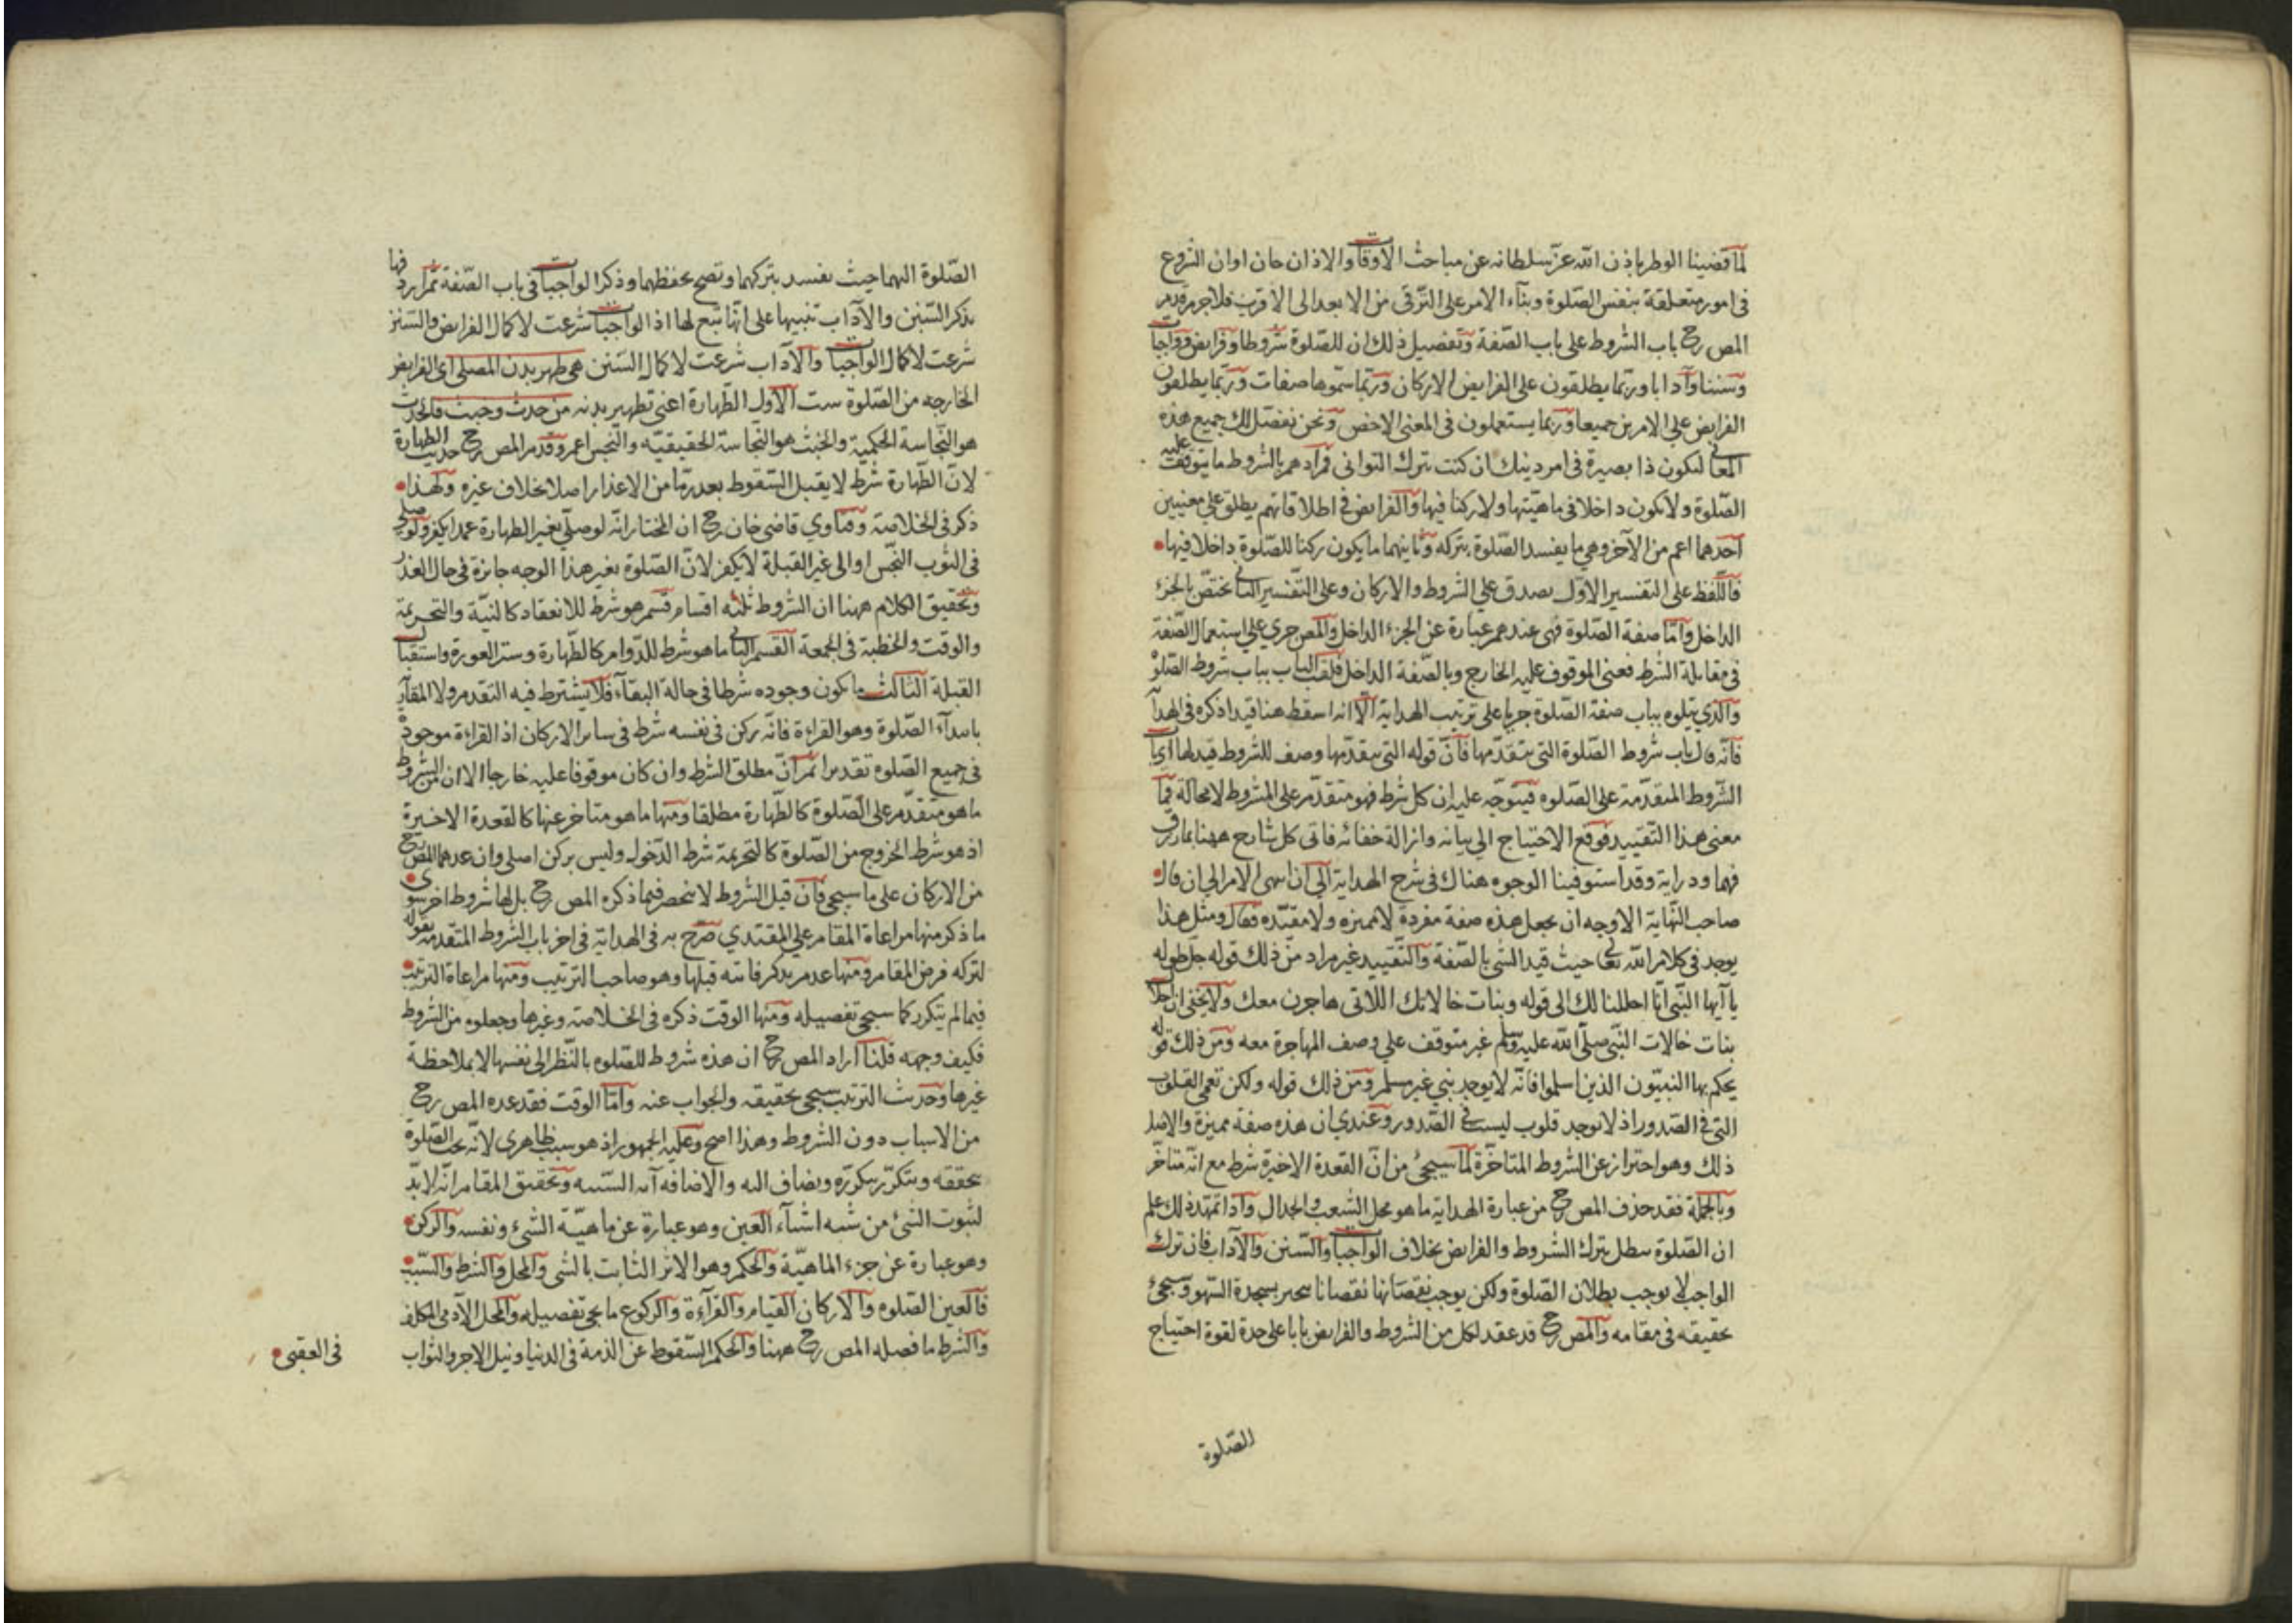 لما قضينا الوطر باذن الله عز سلطانه عن مباحث الاوقات والاذان حان اوان الشروع
فى امور متعلقة بنفس الصلوة وبناء الامر على الترقى من الابعد الى الاقرب فلا جرم قدم
المص رح باب الشروط على باب الصفة وتفصيل ذلك ان للصلوة شروطا وفرايض وواجبات
وسننا وآدابا وربما يطلقون على الفرايض الاركان وربما سموها صفات وربما يطلقون
الفرايض على الامرين جميعا وربما يستعملون فى المعنى الاخص ونحن نفصل لك جميع هذه
المعانى لتكون ذا بصيرة فى امر دينك ان كنت بترك التوانى فمرادهم بالشروط ما يتوقف عليه
الصلوة ولا يكون داخلا فى ماهيتها ولا ركنا فيها والفرايض فى اطلاقاتهم يطلق على معنيين
احدهما اعم من الآخر وهى ما يفسد الصلوة بتركه وثانيهما ما يكون ركنا للصلوة داخلا فيها
فاللفظ على التفسير الاول يصدق على الشروط والاركان وعلى التفسير الثانى يختص بالجزء
الداخل واما صفة الصلوة فهى عندهم عبارة عن الجزء الداخل والمص جرى على استعمال الصفة
فى مقابلة الشرط فعنى الموقوف عليه الخارج وبالصفة الداخل فلقب الباب بباب شروط الصلوة
والذى يتلوه بباب صفة الصلوة جريا على ترتيب الهداية الا انه اسقط هنا قيدا ذكره فى الهداية
فانه قال باب شروط الصلوة التى يتقدمها فان قوله التى يتقدمها وصف للشروط قيد لها اى باب
الشروط المتقدمة على الصلوه فيتوجه عليه ان كل شرط فهو متقدم على المشروط لا محالة فما
معنى هذا التقييد فوقع الاحتياج الى بيانه وازالة خفائه فاتى كل شارح ههنا بما رزق
فهما ودراية وقد استوفينا الوجوه هناك فى شرح الهداية الى ان انتهى الامر الى ان قال
صاحب النهاية الاوجه ان يجعل هذه صفة مفردة لا مميزه ولا مقيده وقال ومثل هذا
يوجد فى كلام الله تعالى حيث قيد الشى بالصفة والتقييد غير مراد من ذلك قوله جل طوله
يا آيها النبى انا احللنا لك الى قوله وبنات خالاتك اللاتى هاجرن معك ولا يخفى ان احلال
بنات خالات النبى صلى الله عليه وسلم غير متوقف على وصف المهاجرة معه ومن ذلك قوله
يحكم بها النبيون الذين اسلموا فانه لا يوجد نبى غير مسلم ومن ذلك قوله ولكن تعمى القلوب
التى فى الصدور اذ لا توجد قلوب ليست فى الصدور وعندى ان هذه صفة مميزة والاصل
ذلك وهو احتراز عن الشروط المتاخرة لما سيجئ من ان القعدة الاخيرة شرط مع انه متاخر
وبالجملة فقد حذف المص رح من عبارة الهداية ما هو محل الشعب والجدال واذا تمهد ذلك علم
ان الصلوة يبطل بترك الشروط والفرايض بخلاف الواجبات والسنن والآداب فان ترك
الواجب لا يوجب بطلان الصلوة ولكن يوجب نقصانها نقصانا يجبر بسجدة السهو وسيجئ
تحقيقه فى مقامه والمص رح قد عقد لكل من الشروط والفرايض بابا على حدة لقوة احتياج
الصلوة
الصلوة اليهما حيث يفسد بتركهما وتصح بحفظهما وذكر الواجبات فى باب الصفة ثم اردفها
بذكر السنن والآداب تنبيها على انها تبع لها اذ الواجبات شرعت لاكمال الفرايض والسنن
شرعت لاكمال الواجبات والآداب شرعت لاكمال السنن هى طهر بدن المصلى اى الفرايض
الخارجه من الصلوة ست الاول الطهارة اعنى تطهير بدنه من حدث وخبث فالحدث
هو النجاسة الحكمية والخبث هو النجاسة الحقيقيه والنجس اعم وقدم المص رح حديث الطهارة
لان الطهارة شرط لا يقبل السقوط بعذر ما من الاعذار اصلا بخلاف غيره ولهذا
ذكر فى الخلاصة وفتاوي قاضى خان رح ان المختار انه لو صلى بغير الطهارة عمدا يكفر ولو صلى
فى الثوب النجس او الى غير القبلة لا يكفر لان الصلوة بغير هذا الوجه جائزة فى حال العذر
وتحقيق الكلام ههنا ان الشروط ثلثه اقسام قسم هو شرط للانعقاد كالنية والتحريمة
والوقت والخطبة فى الجمعة القسم الثانى ما هو شرط للدوام كالطهارة وستر العورة واستقبال
القبلة الثالث ما يكون وجوده شرطا فى حالة البقاء فلا يشترط فيه التقدم ولا المقارنة
بابتداء الصلوة وهو القراءة فانه ركن فى نفسه شرط فى سائر الاركان اذ القراءة موجودة
فى جميع الصلوه تقديرا ثم ان مطلق الشرط وان كان موقوفا عليه خارجا الا ان من الشروط
ما هو متقدم على الصلوة كالطهارة مطلقا ومنها ما هو متاخر عنها كالقعدة الاخيرة
اذ هو شرط الخروج من الصلوة كالتحريمة شرط الدخول وليس بركن اصلى وان عدها المص رح
من الاركان على ما سيجئ فان قيل الشروط لا ينحصر فيما ذكره المص رح بل لها شروط اخر سوى
ما ذكر منها مراعاة المقام على المقتدي صرح به فى الهداية فى اخر باب الشروط المتقدمة بقوله
لتركه فرض المقام ومنها عدم تذكر فائته قبلها وهو صاحب الترتيب ومنها مراعاة الترتيب
فيما لم يتكرر كما سيجئ تفصيله ومنها الوقت ذكره فى الخلاصة وغيرها وجعلوه من الشروط
فكيف وجهه قلنا اراد المص رح ان هذه شروط للصلوه بالنظر الى نفسها لا بملاحظة
غيرها وحديث الترتيب سيجئ تحقيقه والجواب عنه واما الوقت فقد عده المص رح
من الاسباب دون الشروط وهذا اصح وعليه الجمهور اذ هو سبب ظاهرى لانه تجب الصلوة
بتحققه ويتكرر بتكرره ويضاف اليه والاضافه آية السببيه وتحقيق المقام انه لا بد
لثبوت الشئ من سته اشياء العين وهو عبارة عن ماهية الشئ ونفسه والركن
وهو عبارة عن جزء الماهية والحكم وهو الاثر الثابت بالشى والمحل والشرط والسبب
فالعين الصلوه والاركان القيام والقرآءة والركوع ما يجئ تفصيله والمحل الآدمى المكلف
والشرط ما فصله المص رح ههنا والحكم السقوط عن الذمة فى الدنيا ونيل الاجر والثواب
فى العقبى